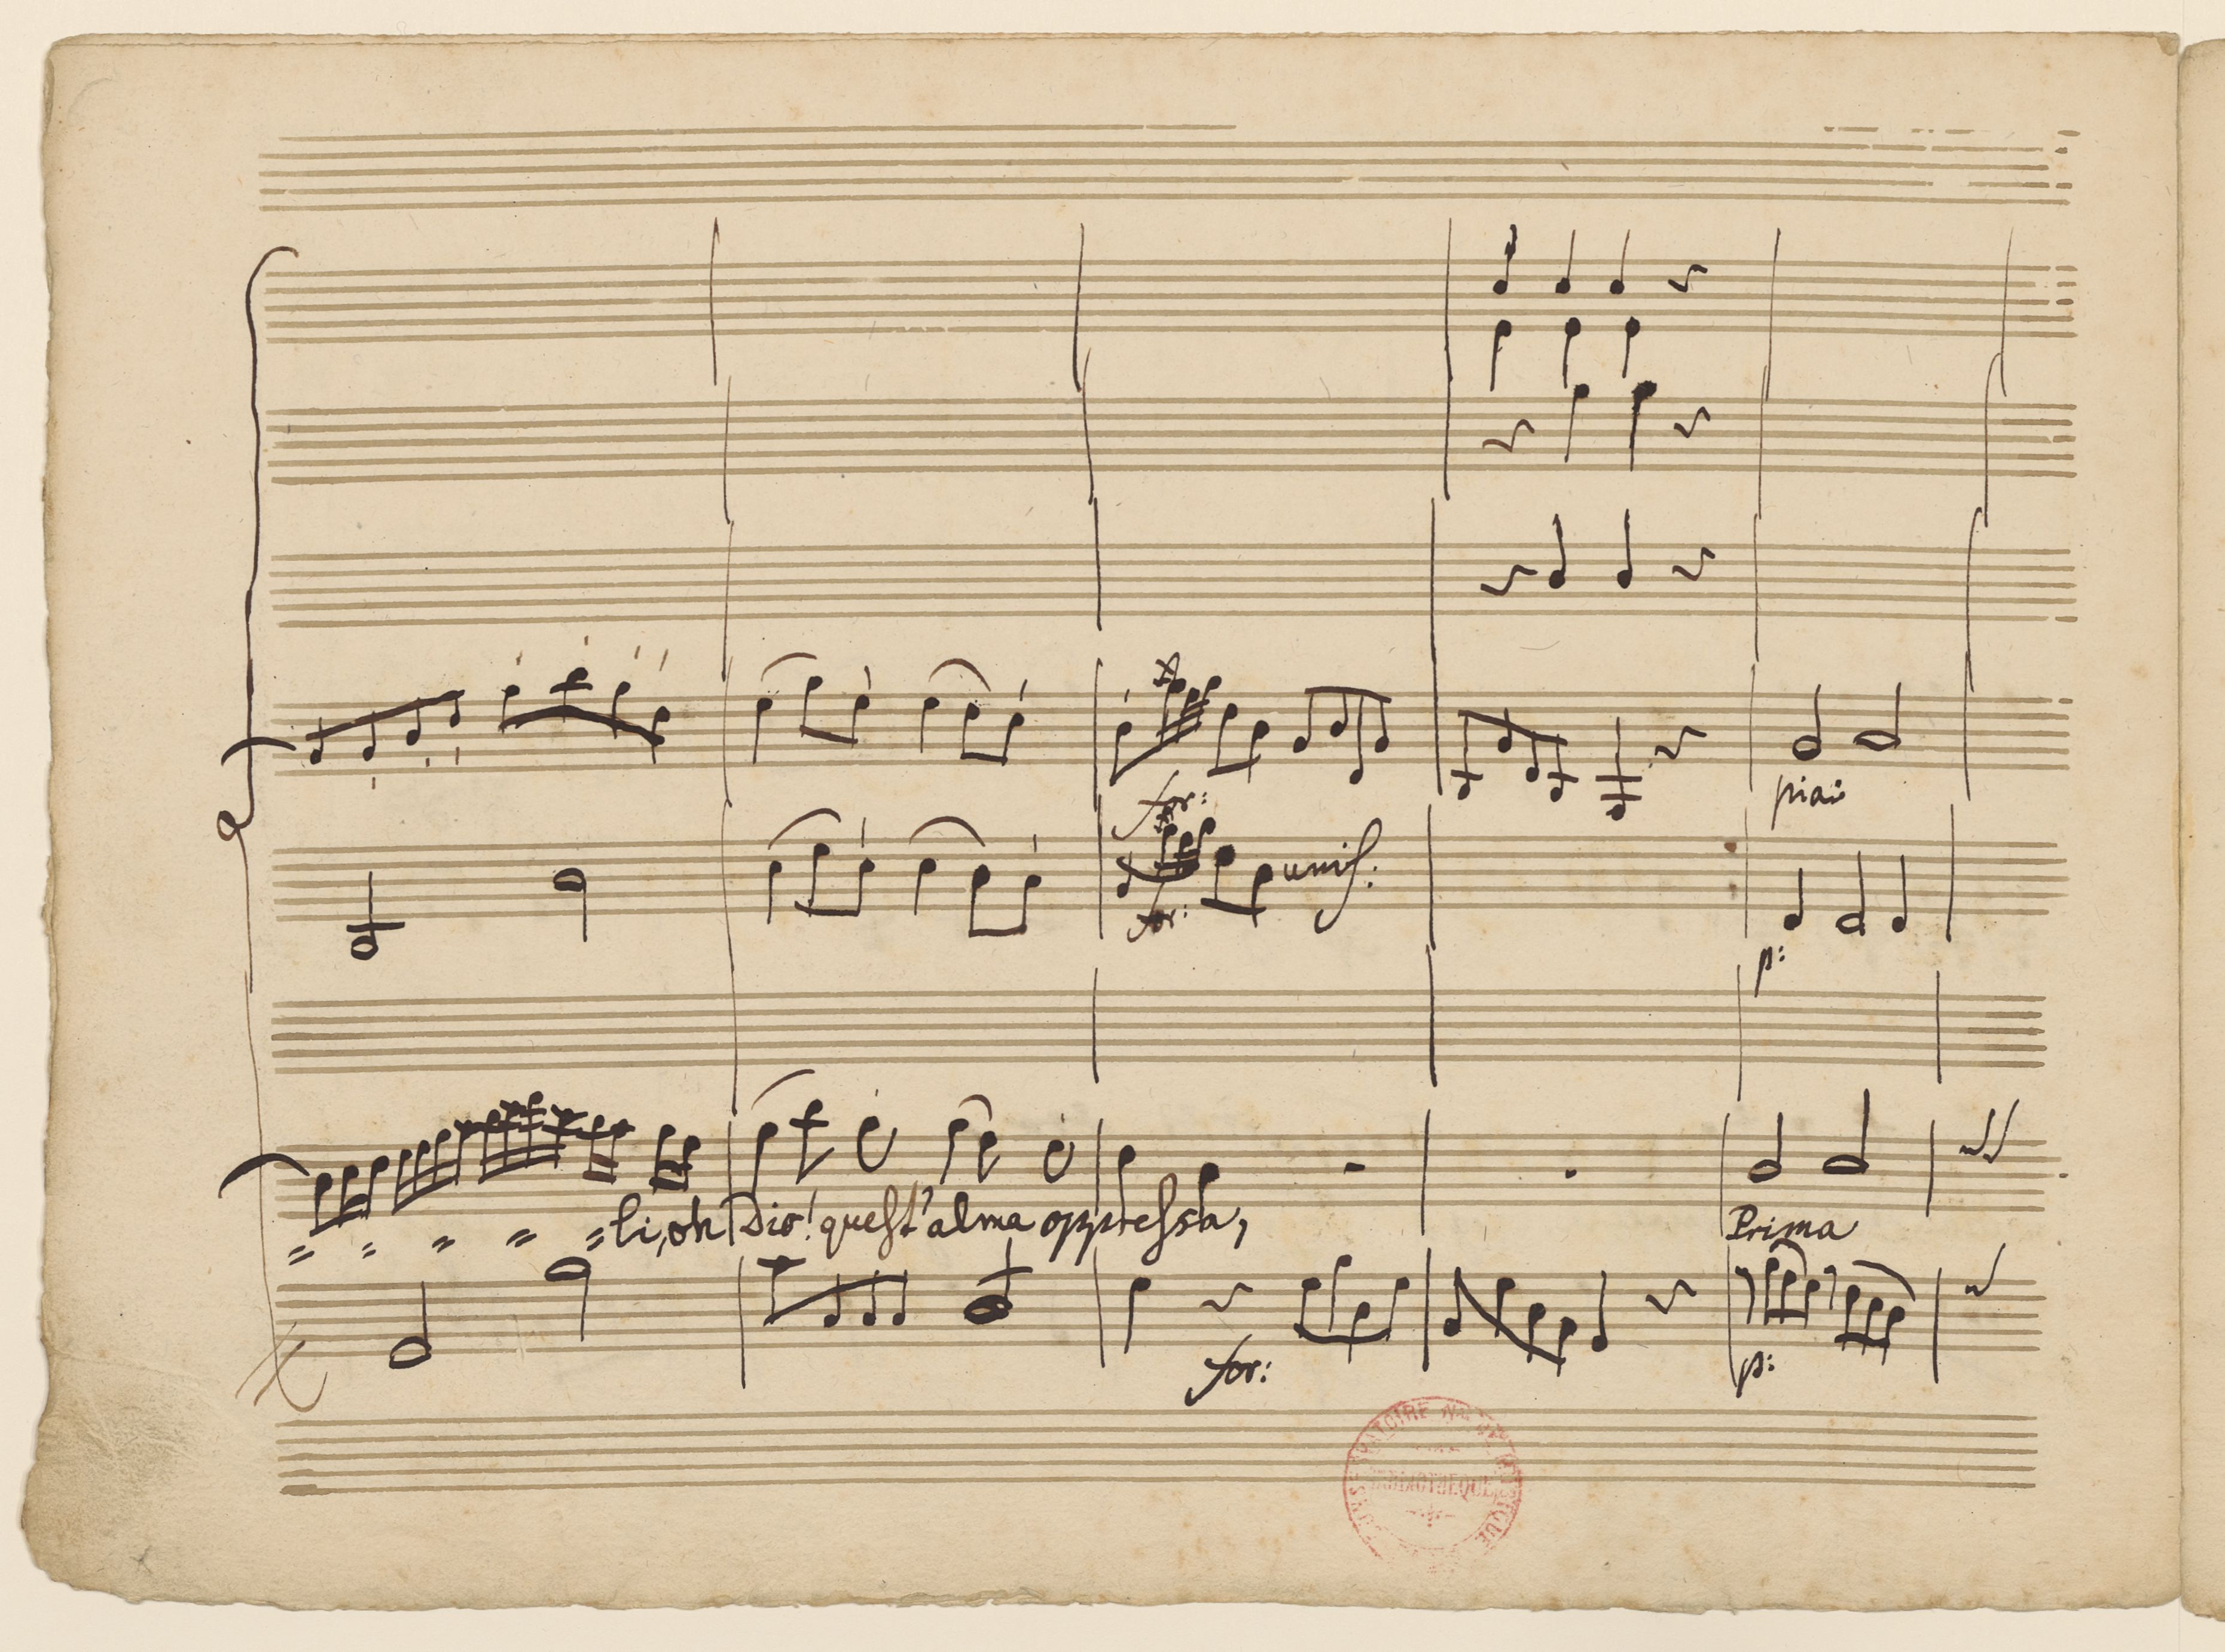 for:
piano
for:
unis:
p:
= = = = = li, oh Dio! quest' alma oppressa,
Prima
for:
p:
CONSERVATOIRE NAL DE MUSIQUE
BIBLIOTHEQUE